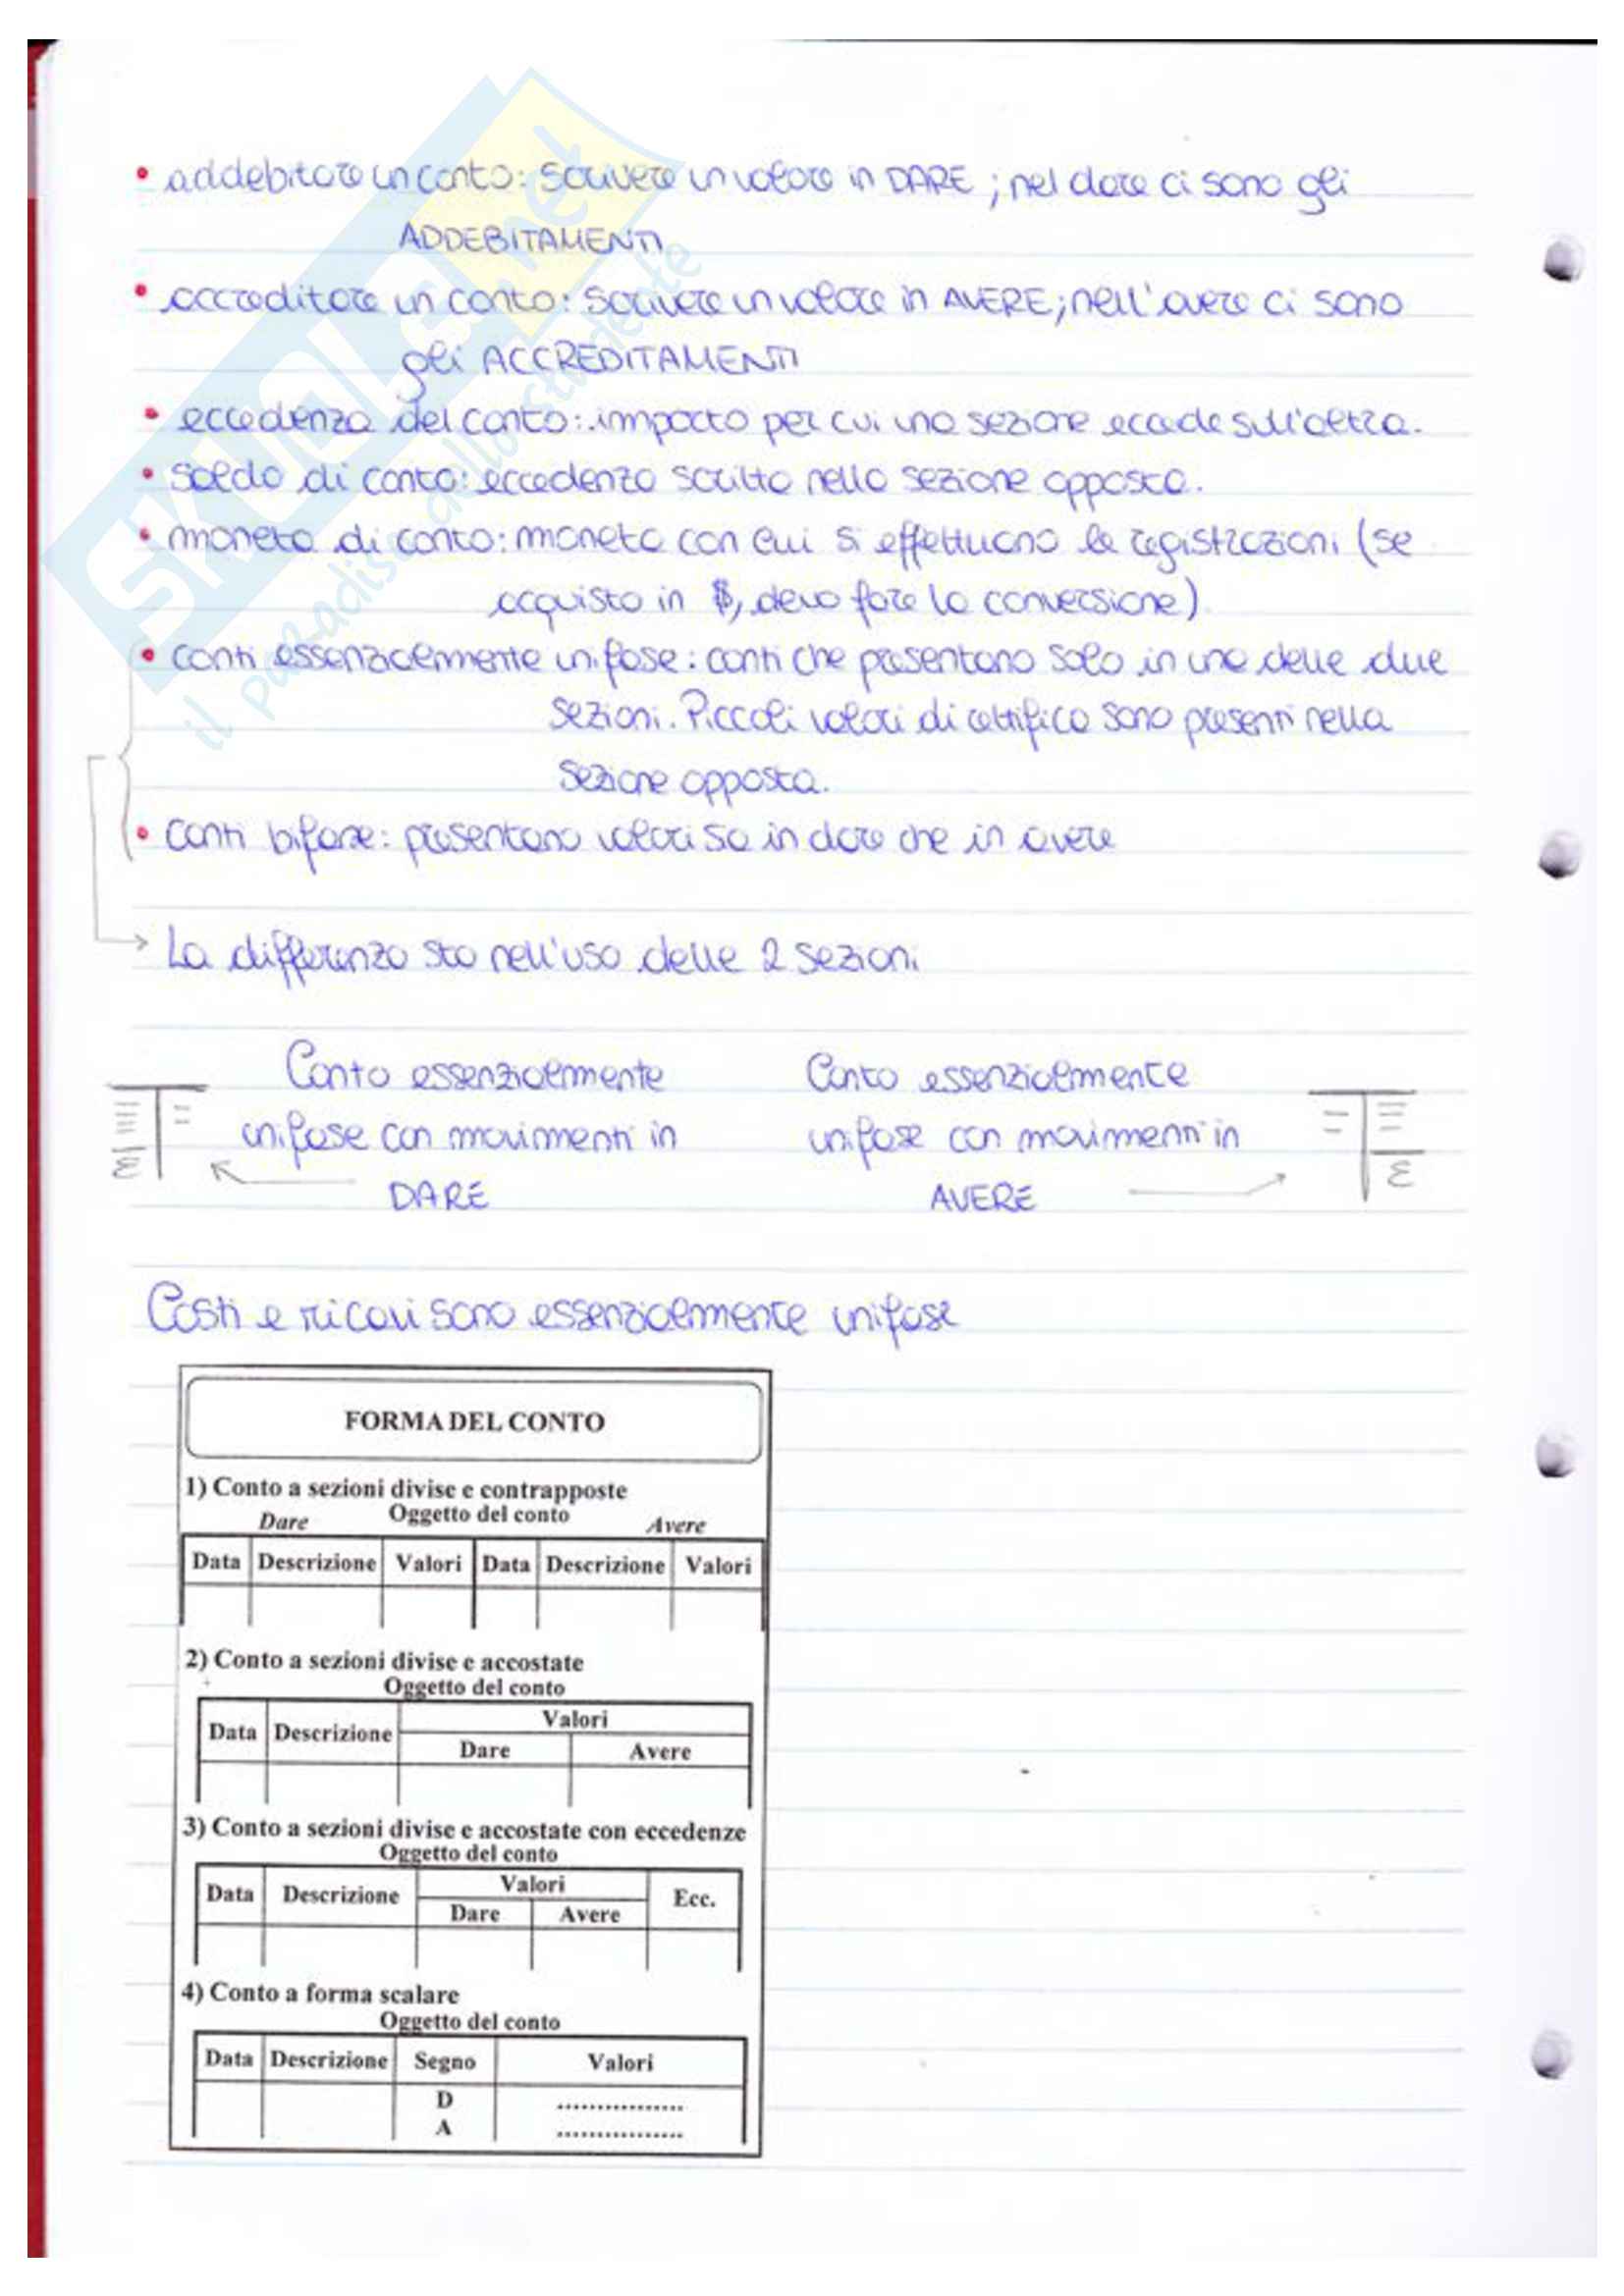 • addebitare un conto: scrivere un valore in DARE; nel dare ci sono gli
ADDEBITAMENTI
• accreditare un conto: scrivere un valore in AVERE; nell'avere ci sono
gli ACCREDITAMENTI
• eccedenza del conto: importo per cui una sezione eccede sull'altra.
• saldo di conto: eccedenza scritta nella sezione opposta.
• moneta di conto: moneta con cui si effettuano le registrazioni (se
acquisto in $, devo fare la conversione)
• conti essenzialmente unifase: conti che presentano solo in una delle due
sezioni. Piccoli valori di rettifica sono presenti nella
sezione opposta.
• conti bifase: presentano valori sia in dare che in avere
→ La differenza sta nell'uso delle 2 sezioni
Conto essenzialmente
unifase con movimenti in
DARE
Conto essenzialmente
unifase con movimenti in
AVERE
Σ
Σ
Costi e ricavi sono essenzialmente unifase
FORMA DEL CONTO
1) Conto a sezioni divise e contrapposte
Dare Oggetto del conto Avere
Data Descrizione Valori Data Descrizione Valori
2) Conto a sezioni divise e accostate
Oggetto del conto
Data Descrizione Valori
Dare Avere
3) Conto a sezioni divise e accostate con eccedenze
Oggetto del conto
Data Descrizione Valori Ecc.
Dare Avere
4) Conto a forma scalare
Oggetto del conto
Data Descrizione Segno Valori
D ................
A ................
SKUOLA.net
il paradiso dello studente